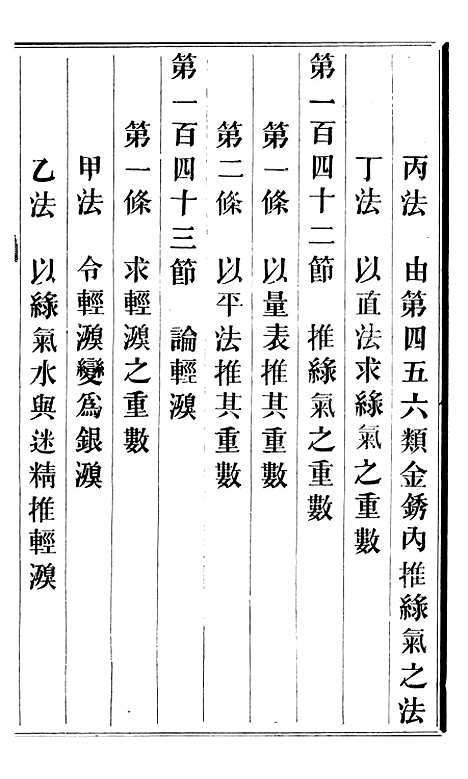 丙法　由第四五六類金銹內推緑氣之法
丁法　以直法求緑氣之重數
第一百四十二節　推緑氣之重數
第一條　以量表推其重數
第二條　以平法推其重數
第一百四十三節　論輕溴
第一條　求輕溴之重數
甲法　令輕溴變爲銀溴
乙法　以緑氣水與迷精推輕溴